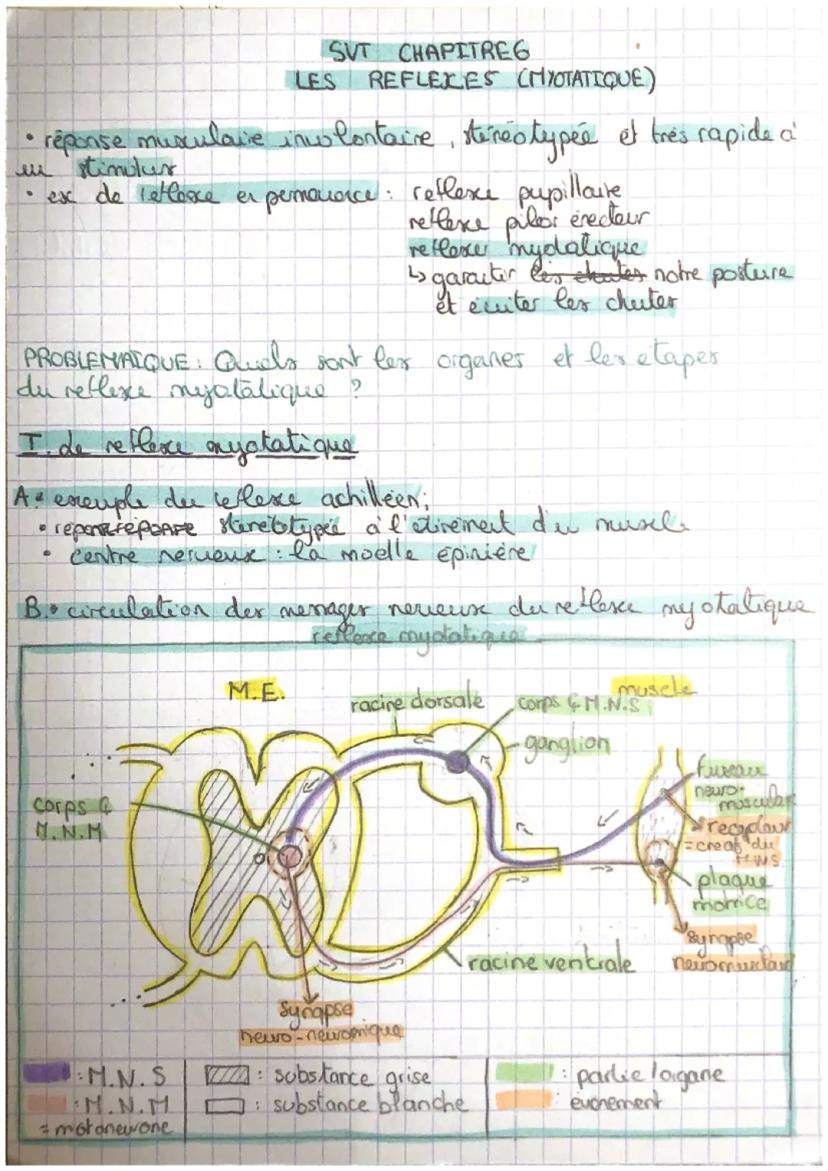 SVT CHAPITRE 6
LES REFLEXES (MYOTATIQUE)
• réponse musculaire involontaire, stéréotypée et très rapide à
un stimulus
• ex de reflexe en permanence : reflexe pupillaire
reflexe pilor érecteur
reflexe myotatique
↳ garantir les chutes notre posture
et éviter les chutes
PROBLEMAIQUE : Quels sont les organes et les étapes
du reflexe myotatique ?
I. Le reflexe myotatique
A • exemple du reflexe achilléen :
• réponse stéréotypée à l'étirement d'un muscle
• centre nerveux : la moelle épinière
B. • circulation des messages nerveux du reflexe myotatique
reflexe myotatique
M.E.
muscle
racine dorsale
corps C M.N.S
ganglion
fuseau
neuro-
musculaire
corps C
M.N.M
récepteur
= creat° du
MNS
plaque
motrice
synapse
neuromusculaire
racine ventrale
synapse
neuro-neuronique
: M.N.S
: substance grise
: partie/organe
: M.N.M
: substance blanche
: évènement
= motoneurone